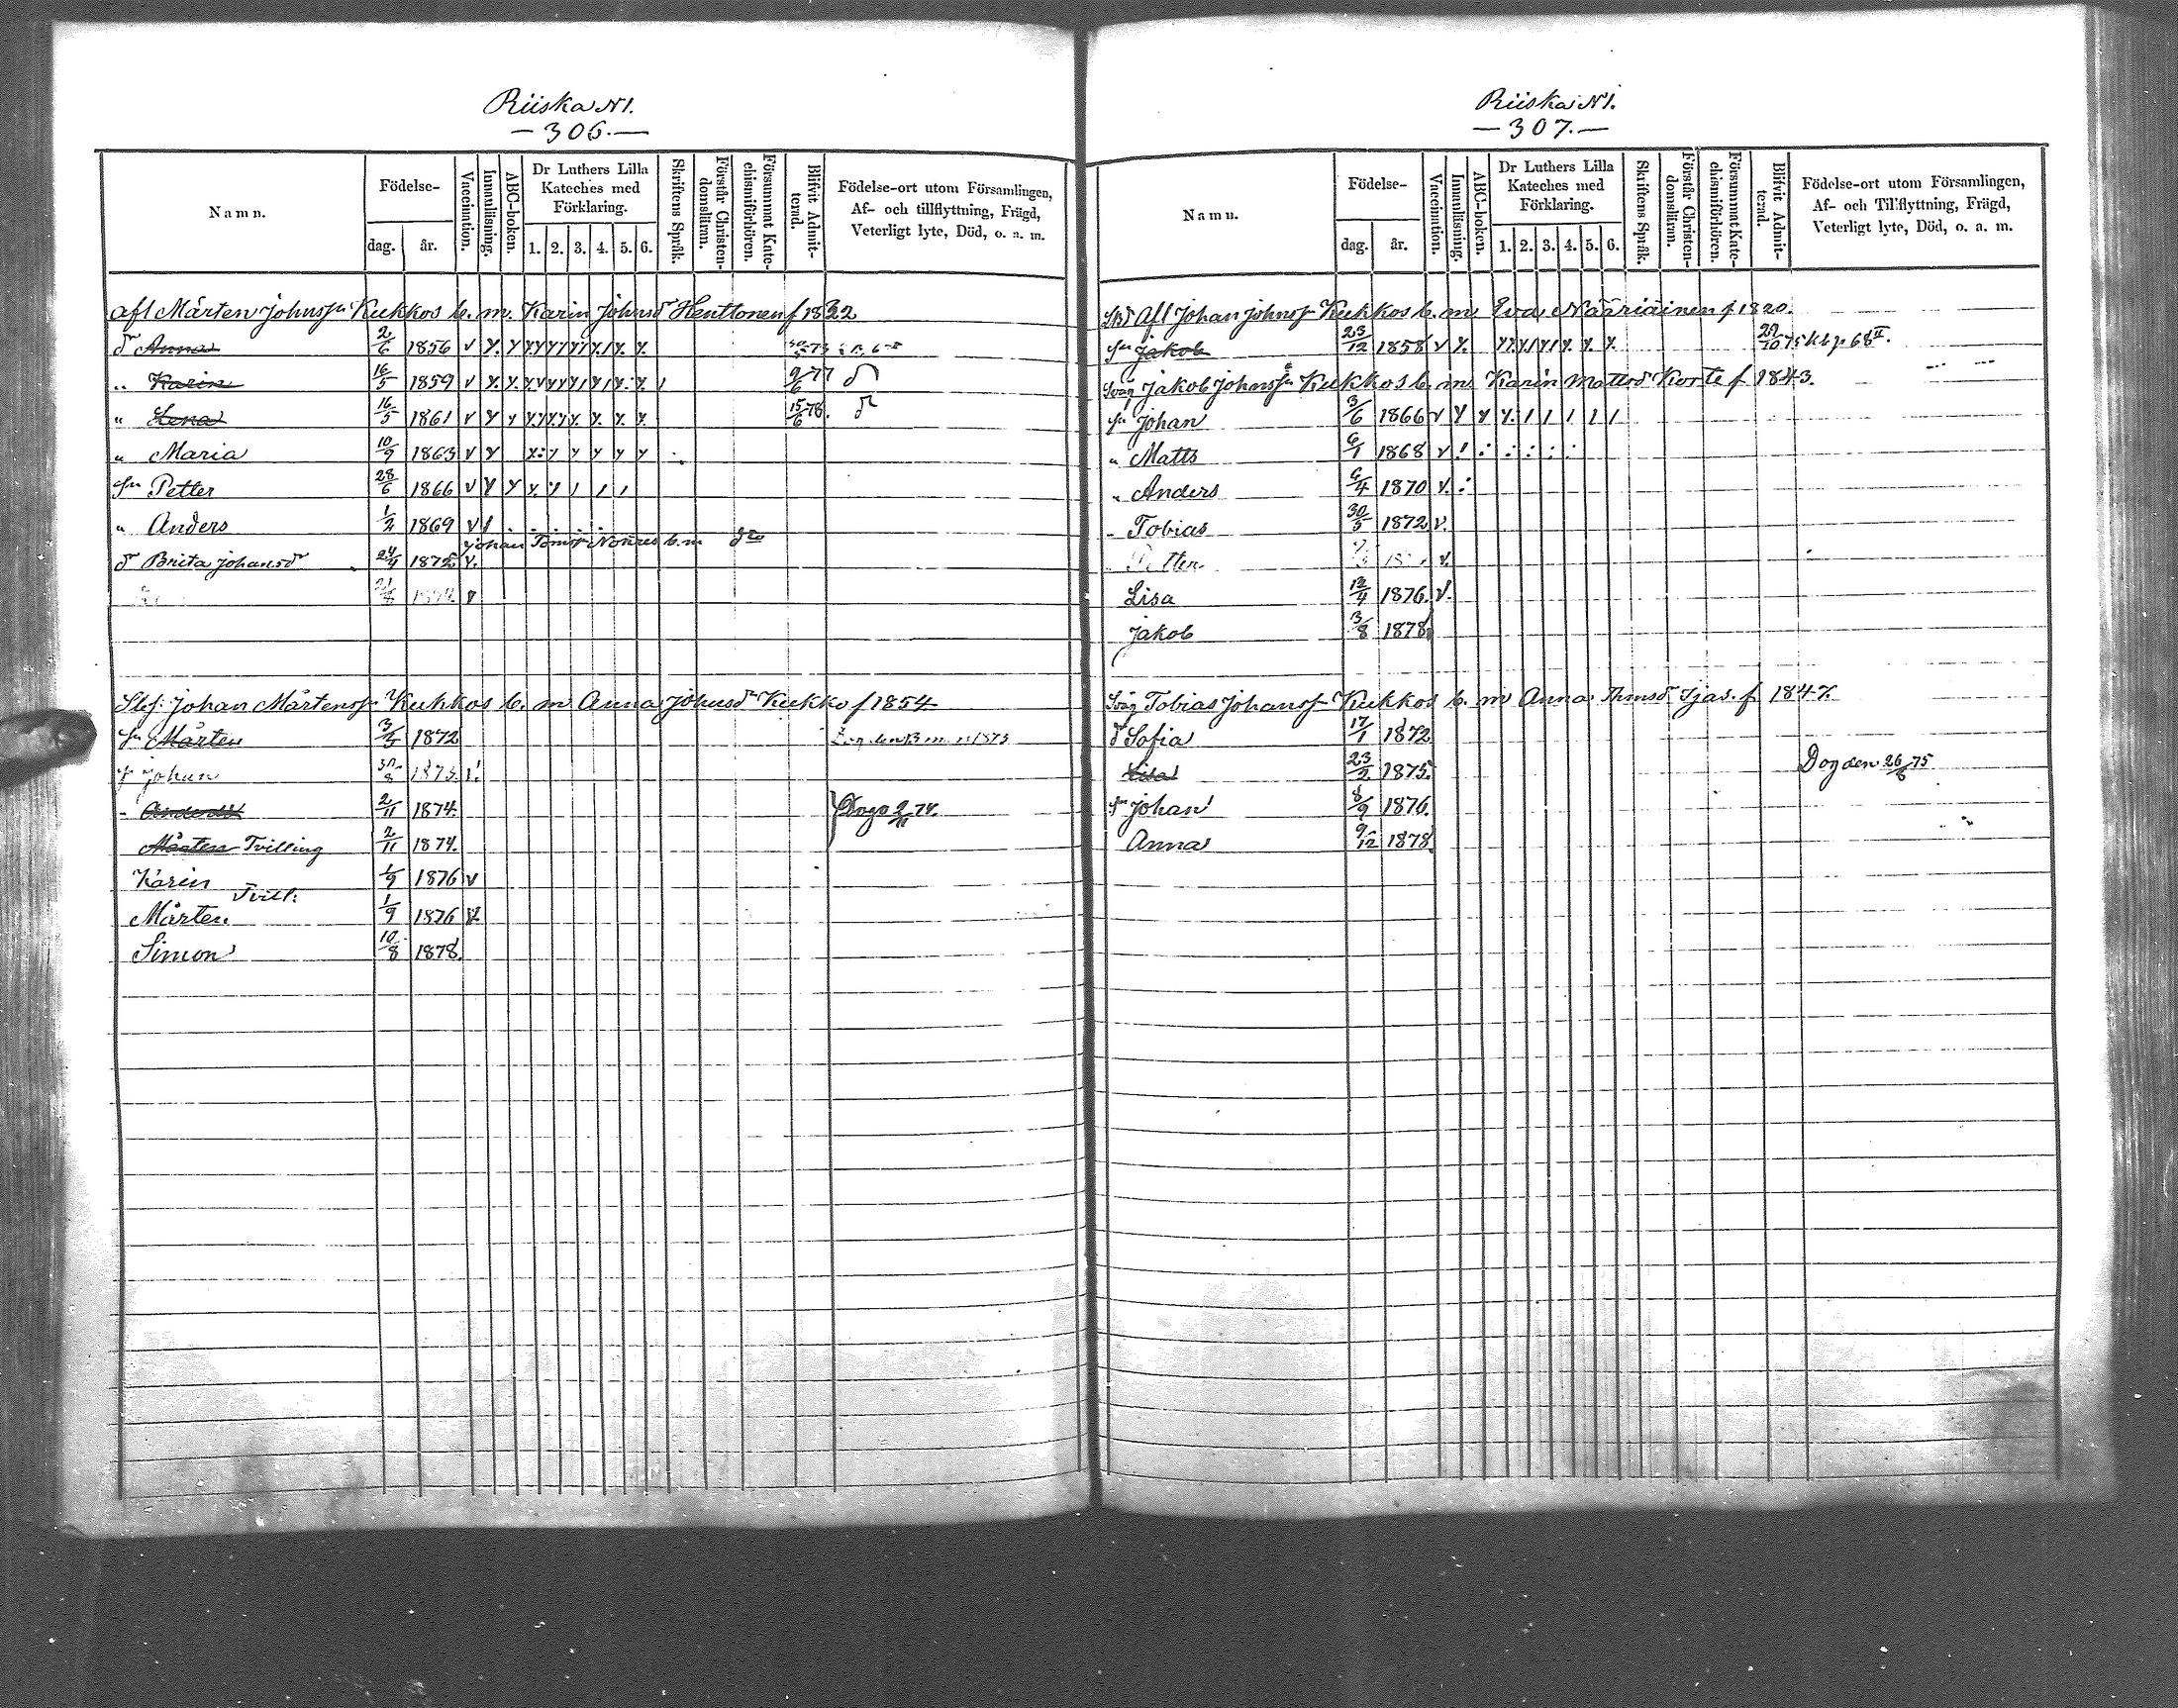 Riiska N1.
— 306. —
Namn.
Födelse-
dag.
år.
Vaccination.
Innanläsning.
ABC-boken.
Dr Luthers Lilla Kateches med Förklaring.
1. 2. 3. 4. 5. 6.
Skriftens Språk.
Förstår Christendomsläran.
Försummat Katechismiförhören.
Blifvit Admitterad.
Födelse-ort utom Församlingen,
Af- och tillflyttning, Frägd,
Veterligt lyte, Död, o. a. m.
afl Mårten Johnss Kukkos b. m. Karin Johnsd Henttonen f 1822
d Anna 2/6 1856 v
" Karin 16/5 1859 v 9/6 77
" Lena 16/5 1861 v 15/6 78.
" Maria 10/9 1863 v
sn Petter 28/6 1866 v
" Anders 1/2 1869 v
Johan b. m
d Brita Johansdr 24/4 1872 v.
Stf. Johan Mårtenss Kukkos b. m Anna Johnsdr Kukko f 1854
sn Mårten 3/5 1872
Johan 30/8 1873
- 2/11 1874. Dogo 2/11 74.
Mårten Tvilling 2/11 1874.
Karin 1/9 1876 v
Tvill:
Mårten 1/9 1876 v
Simon 10/8 1878.
Riiska N1.
— 307. —
Namn.
Födelse-
dag.
år.
Vaccination.
Innanläsning.
ABC-boken.
Dr Luthers Lilla Kateches med Förklaring.
1. 2. 3. 4. 5. 6.
Skriftens Språk.
Förstår Christendomsläran.
Försummat Katechismiförhören.
Blifvit Admitterad.
Födelse-ort utom Församlingen,
Af- och Tillflyttning, Frägd,
Veterligt lyte, Död, o. a. m.
Afl Johan Johnss Kukkos b. m Eva Nääriäinen f 1820.
sn Jakob 23/12 1858 v 68 II.
Jakob Johnss Kukkos b. m Karin Mattsd Korte f 1843.
sn Johan 3/6 1866 v
" Matts 6/1 1868 v
" Anders 6/4 1870 v.
- Tobias 30/5 1872 v.
Petter v.
Lisa 12/4 1876. v.
Jakob 3/8 1878
Tobias Johanss Kukkos b. m Anna Thmsd f 1847.
d Sofia 17/1 1872
Lisa 23/2 1875. Dog den 26/8 75
sn Johan 8/9 1876.
Anna 9/12 1878